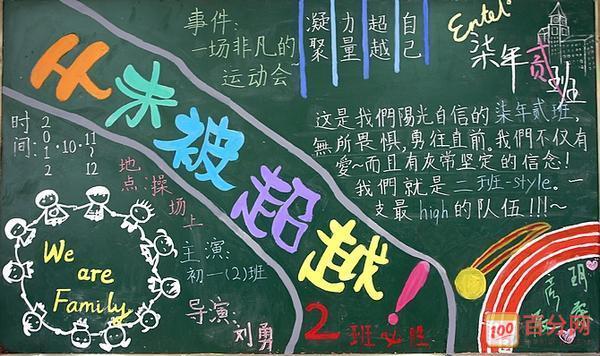 事件:
一场非凡的
运动会~
凝聚
力量
超越
自己
Enter!
柒年贰班
从未被超越!
时间:
2012·10·11
12
地点:操场上
这是我們陽光自信的柒年贰班,
無所畏惧,勇往直前。我們不仅有
愛~而且有灰常坚定的信念!
我們就是二班-style。一
支最high的队伍!!!~
We
are
Family
主演:
初一(2)班
导演:
刘勇
2班必胜
100
百分网